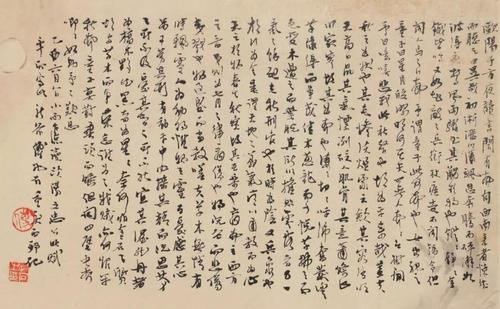 歐陽子方夜讀書聞有聲自西南来者悚然
而聽之曰異哉初淅瀝以蕭颯忽奔騰而砰湃如
波濤夜驚風雨驟至其觸於物也鏦鏦錚錚金
鐵皆鳴又如赴敵之兵銜枚疾走不聞號令但
聞人馬之行聲予謂童子此何聲也汝出視之
童子曰星月皎潔明河在天四無人聲聲在樹間
予曰噫嘻悲哉此秋聲也胡為乎来哉蓋夫
秋之為狀也其色慘淡煙霏雲斂其容清明
天高日晶其氣慄冽砭人肌骨其意蕭條山
川寂寥故其為聲也淒淒切切呼號奮發豐
草綠縟而爭茂佳木蔥蘢而可悅草拂之而
色變木遭之而葉脫其所以摧敗零落者乃一
氣之餘烈夫秋刑官也於時為陰又兵象也
於行為金是謂天地之義氣常以肅殺而為心
天之於物春生秋實故其在樂也商聲主西方
之音夷則為七月之律商傷也物既老而悲傷
夷戮也物過盛而當殺嗟夫草木無情有
時飄零人為動物惟物之靈百憂感其心
萬事勞其形有動乎中必搖其精而況思其力
之所不及憂其智之所不能宜其渥然丹者
為槁木黟然黑者為星星奈何非金石之質
欲與草木而爭榮念誰為之戕賊亦何恨乎
秋聲童子莫對垂頭而睡但聞四壁蟲聲
唧唧如助予之歎息
六月 小雨 讀歐陽文忠公此賦